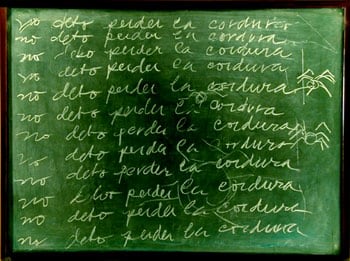 no debo perder la cordura
no debo perder la cordura
no debo perder la cordura
no debo perder la cordura
no debo perder la cordura
no debo perder la cordura
no debo perder la cordura
no debo perder la cordura
no debo perder la cordura
no debo perder la cordura
no debo perder la cordura
no debo perder la cordura